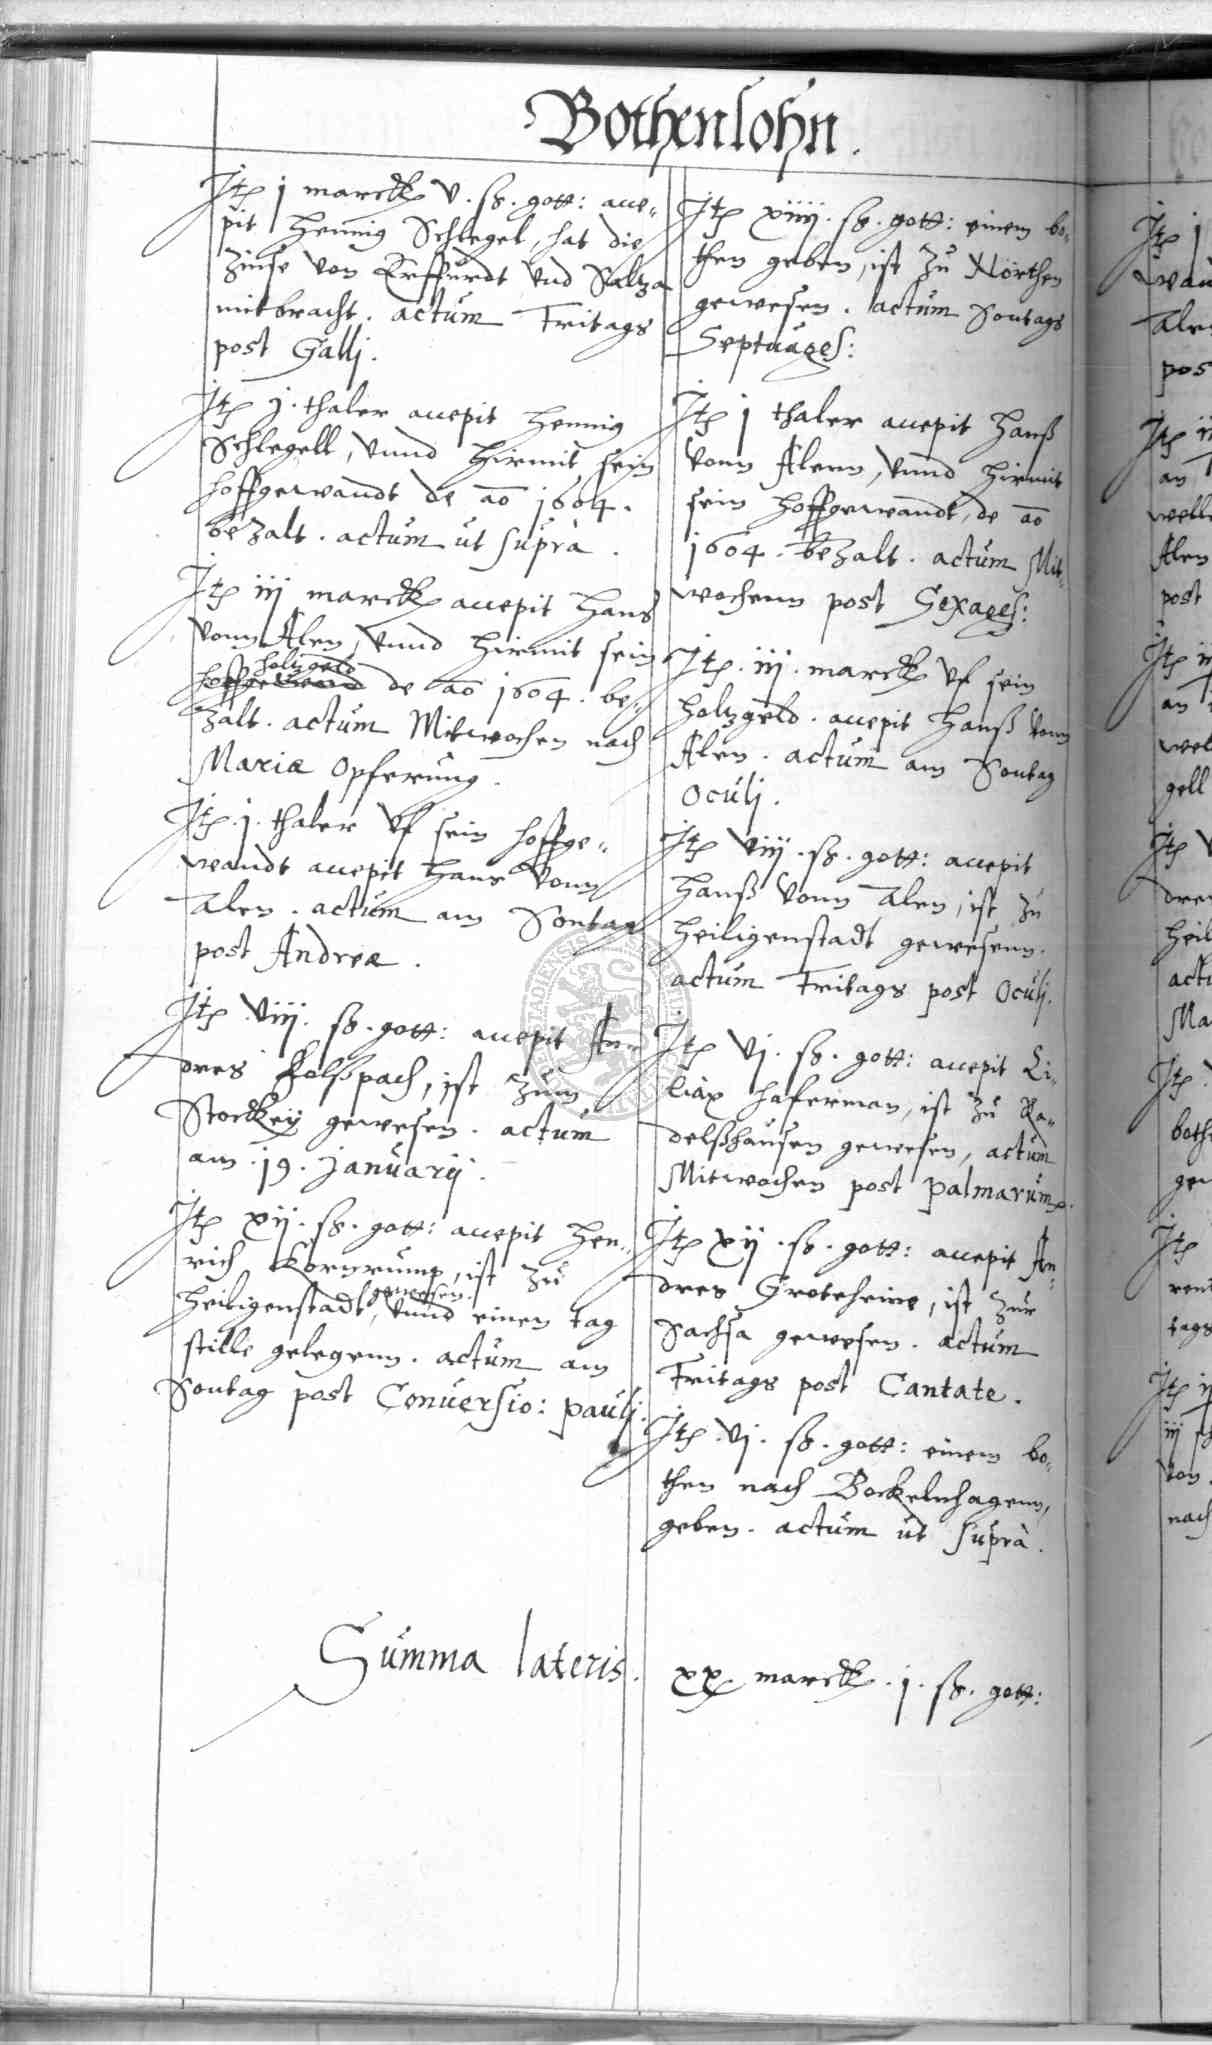 Bothenlohn.
Itꝭ j marckꝭ v. sß. gott: acce-
pit Hennig Schlegel, hat die
Zinse von Erffurdt vnd Saltza
mitbracht. actum Fritags
post Gallj.
Itꝭ j. thaler accepit Hennig
Schlegell, vnnd hirmit sein
hoffgewandt de aō 1604.
bezalt. actum ut suprà.
Itꝭ iij marckꝭ accepit Hans
vonn Alen, vnnd hirmit sein
holtzgeld
hoffgewand de aō 1604. be-
zalt. actum Mitwochen nach
Mariæ Opferung.
Itꝭ. j. thaler vf sein hoffge-
wandt accepit Hans vonn
Alen. actum am Sontag
post Andreæ.
Itꝭ viij. sß. gott: accepit An-
dres Kolßpach, ist zum
Storckey gewesen. actum
am .19. Januarij.
Itꝭ xij. sß. gott: accepit Hen-
rich Kornrump, ist zu
gewesen.
Heiligenstadt, vnnd einen tag
stille gelegenn. actum am
Sontag post Conuersio: paulj.
Itꝭ xiiij. sß. gott: einem bo-
then geben, ist zu Nörthen
gewesen. actum Sontags
Septuages:
Itꝭ j thaler accepit Hanß
vonn Alenn, vnnd hirmit
sein hoffgewandt, de aō
1604. bezalt. actum Mit-
wochenn post Sexages:
Itꝭ. iij. marckꝭ vf sein
holtzgeld. accepit Hanß vonn
Alen. actum am Sontag
Oculj.
Itꝭ viij. sß. gott: accepit
Hanß vonn Alen, ist zu
Heiligenstadt gewesenn.
actum Fritags post Oculj.
Itꝭ vj. sß. gott: accepit Ci-
liax Haferman, ist zu Ra-
delßhausen gewesen, actum
Mitwochen post palmarum.
Itꝭ xij. sß. gott: accepit An-
dres Groteheine, ist zur
Sachsa gewesen. actum
Fritags post Cantate.
Itꝭ vj. sß. gott: einem bo-
then nach Bockelnhagenn,
geben. actum ut suprà.
Summa lateris. xx marckꝭ. j. sß. gott: